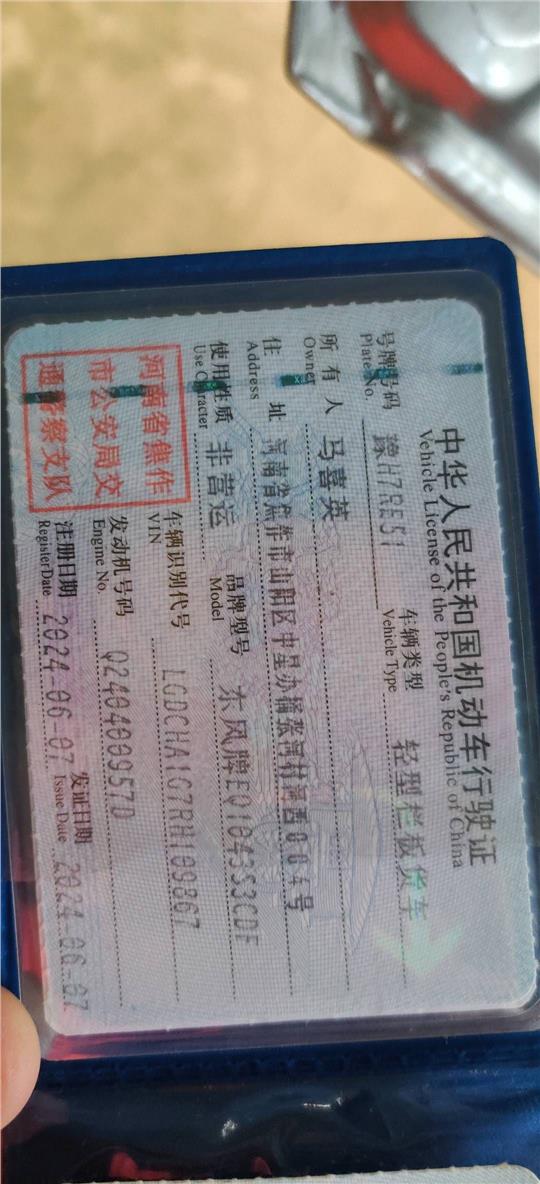 中华人民共和国机动车行驶证
Vehicle License of the People's Republic of China
号牌号码 豫H7RE51 车辆类型 轻型栏板货车
Plate No. Vehicle Type
所有人 马喜英
Owner
住址 河南省焦作市山阳区中星办摇张河村河西004号
Address
使用性质 非营运 品牌型号 东风牌EQ1043S3CDF
Use Character Model
河南省焦作
市公安局交
通警察支队
车辆识别代号 LGDCHA1G7RH109867
VIN
发动机号码 Q240400957D
Engine No.
注册日期 2024-06-07 发证日期 2024-06-07
Register Date Issue Date